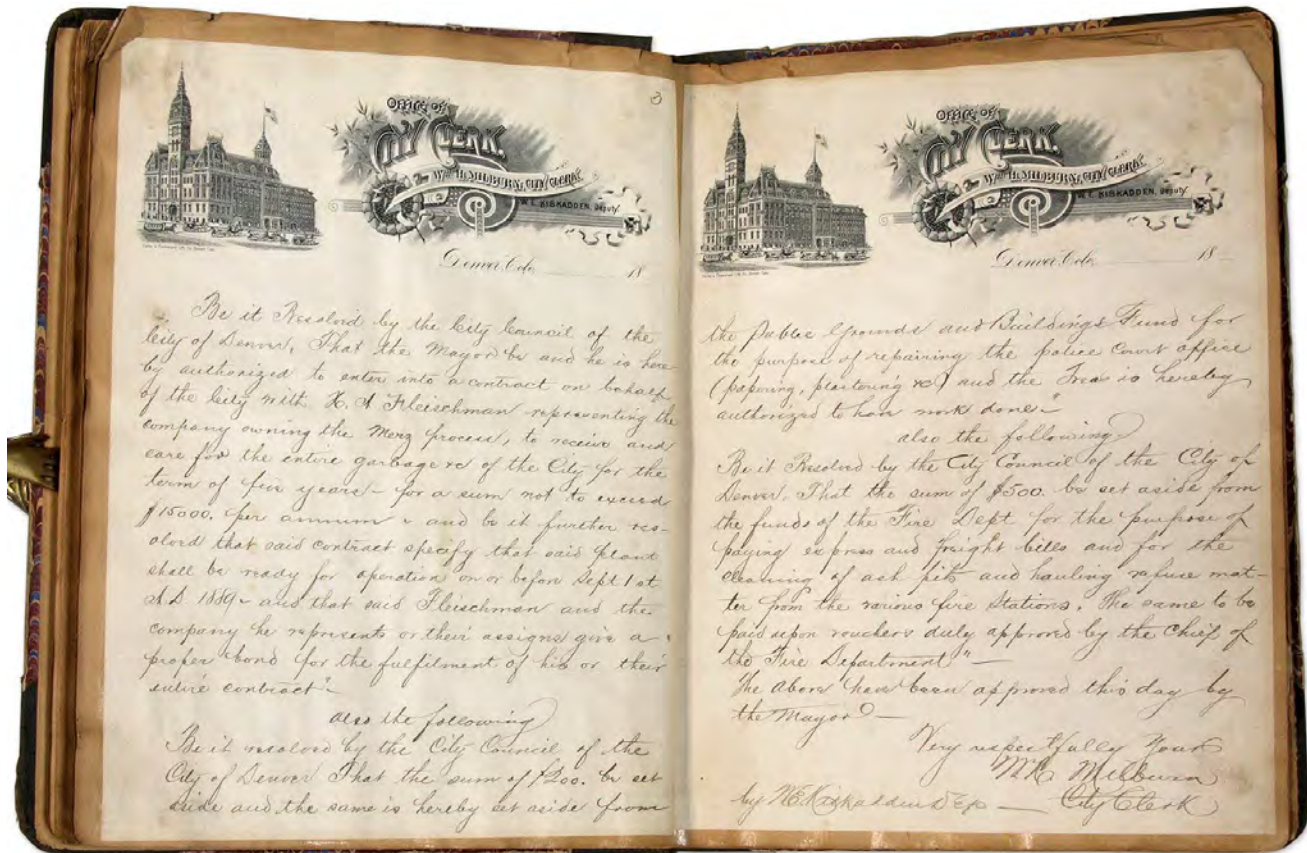 3
OFFICE OF
CITY CLERK.
WM. H. MILBURN, CITY CLERK.
W. E. BISKADDEN, Deputy.
Denver, Colo. 18
Be it Resolved by the City Council of the
City of Denver, That the Mayor be and he is here
by authorized to enter into a contract on behalf
of the City with H. A Fleischman representing the
company owning the Merz process, to receive and
care for the entire garbage &c of the City for the
term of five years – for a sum not to exceed
$15000. per annum & and be it further res-
olved that said contract specify that said plant
shall be ready for operation on or before Sept 1st
A.D. 1889 – and that said Fleischman and the
company he represents or their assigns give a
proper bond for the fulfilment of his or their
entire contract" –
also the following
Be it resolved by the City Council of the
City of Denver That the sum of $200. be set
aside and the same is hereby set aside from
OFFICE OF
CITY CLERK.
WM. H. MILBURN, CITY CLERK.
W. E. BISKADDEN, Deputy.
Denver, Colo. 18
the Public Grounds and Buildings Fund for
the purpose of repairing the police Court office
(papering, plastering &c) and the Treas is hereby
authorized to have work done."
also the following
Be it Resolved by the City Council of the City of
Denver. That the sum of $500. be set aside from
the funds of the Fire Dept for the purpose of
paying express and freight bills and for the
cleaning of ash pits and hauling refuse mat-
ter from the various fire Stations. The same to be
paid upon vouchers duly approved by the Chief of
the Fire Department" –
The above have been approved this day by
the Mayor –
Very respectfully Yours
Milburn
by Dep – City Clerk